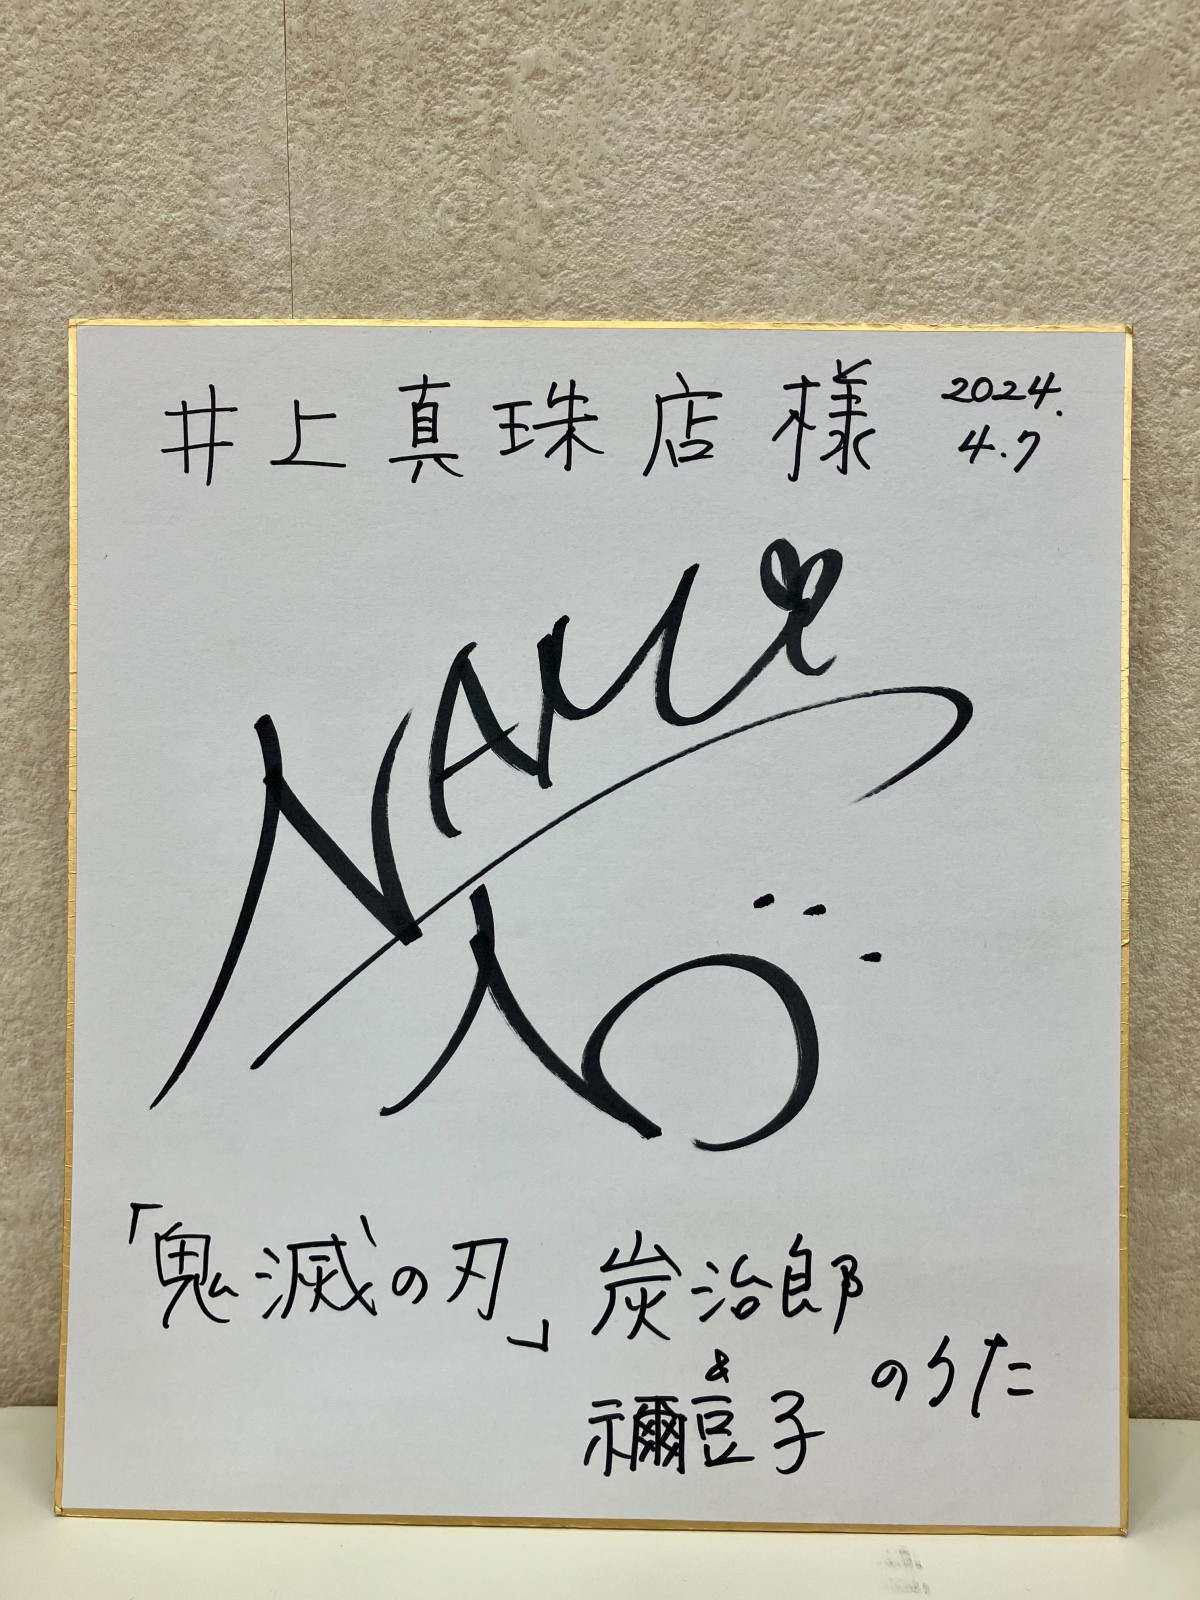 井上真珠店様
2024.
4.7
NAMi
「鬼滅の刃」炭治郎
&
禰豆子
のうた